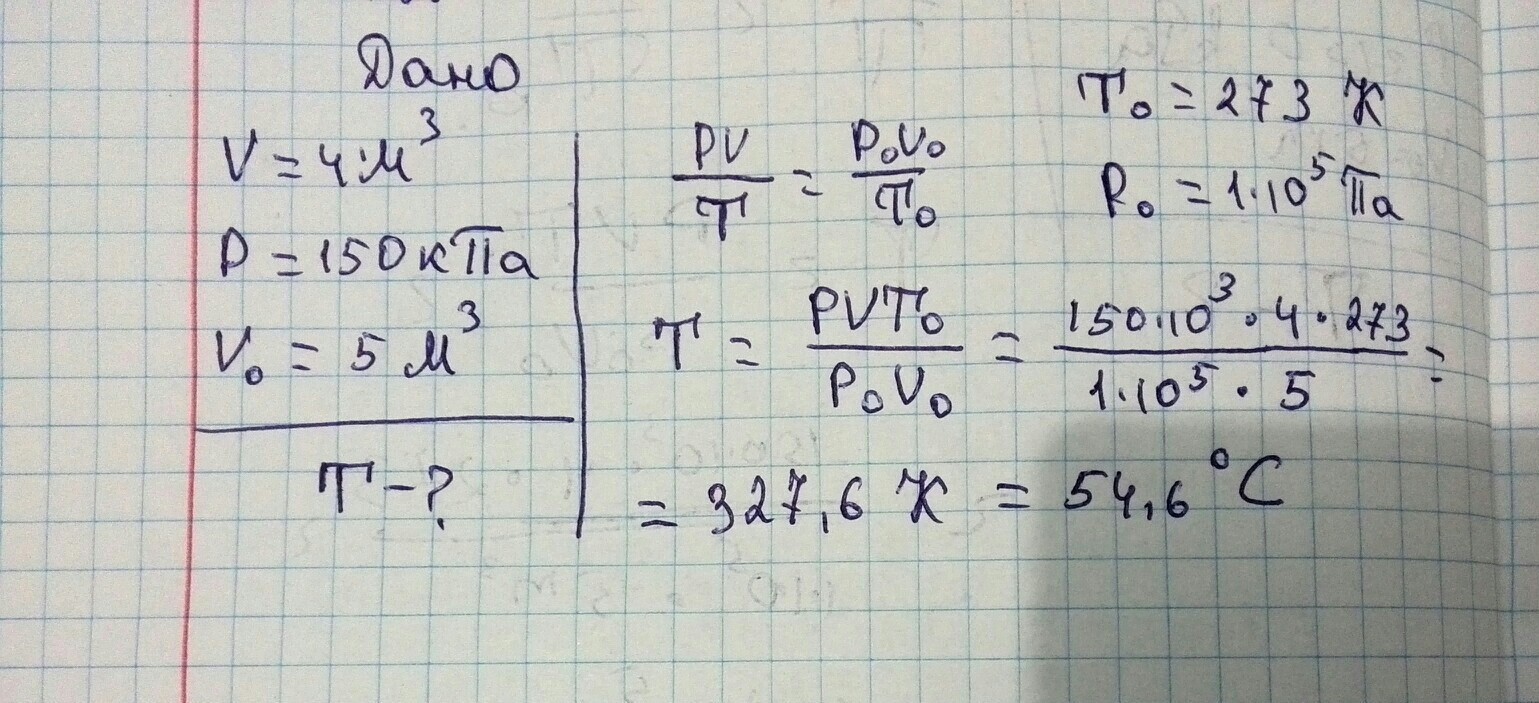 Дано
V = 4 м³
P = 150 кПа
V₀ = 5 м³
T - ?
PV/T = P₀V₀/T₀
T₀ = 273 К
P₀ = 1·10⁵ Па
T = PVT₀/P₀V₀ = 150·10³·4·273/1·10⁵·5 =
= 327,6 К = 54,6 °C